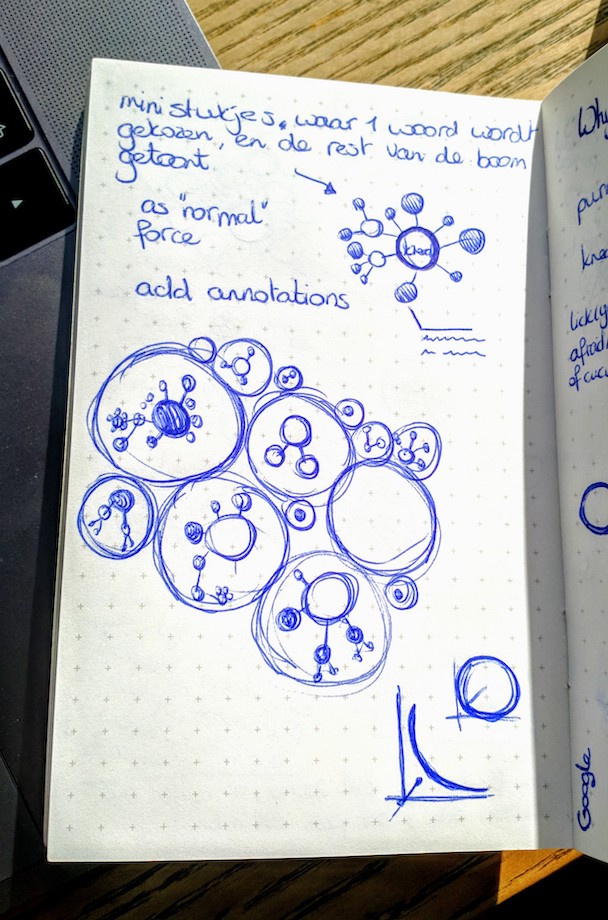 ministukjes, waar 1 woord wordt
gekozen, en de rest van de boom
getoont
as "normal"
force
add annotations
Why
pure
of cucu
Google